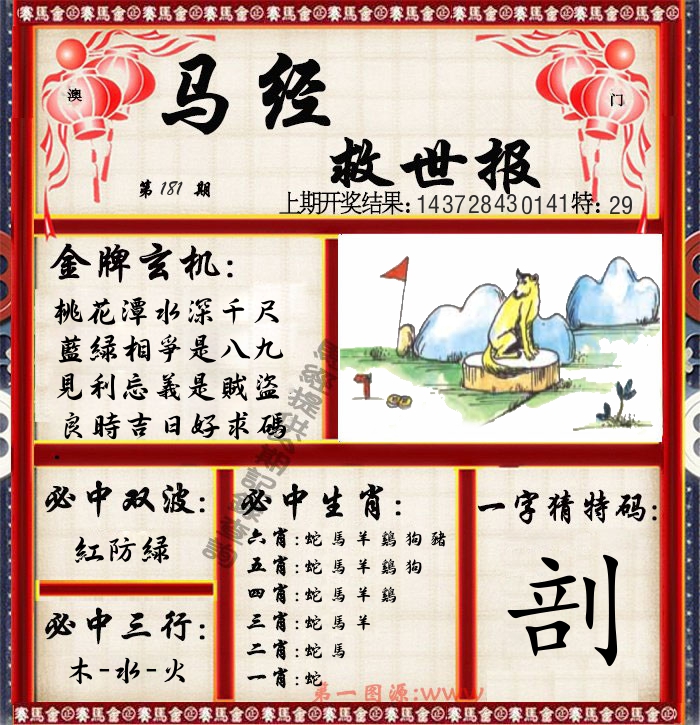 正賽馬會正賽馬會正賽馬會正賽馬會正賽馬會正賽馬會
澳
门
马经
救世报
第181期
上期开奖结果:143728430141特:29
金牌玄机:
桃花潭水深千尺
藍綠相爭是八九
見利忘義是賊盜
良時吉日好求碼
必中双波:
紅防綠
必中三行:
木-水-火
必中生肖:
六肖:蛇馬羊鷄狗豬
五肖:蛇馬羊鷄狗
四肖:蛇馬羊鷄
三肖:蛇馬羊
二肖:蛇馬
一肖:蛇
一字猜特码:
剖
第一图源:www